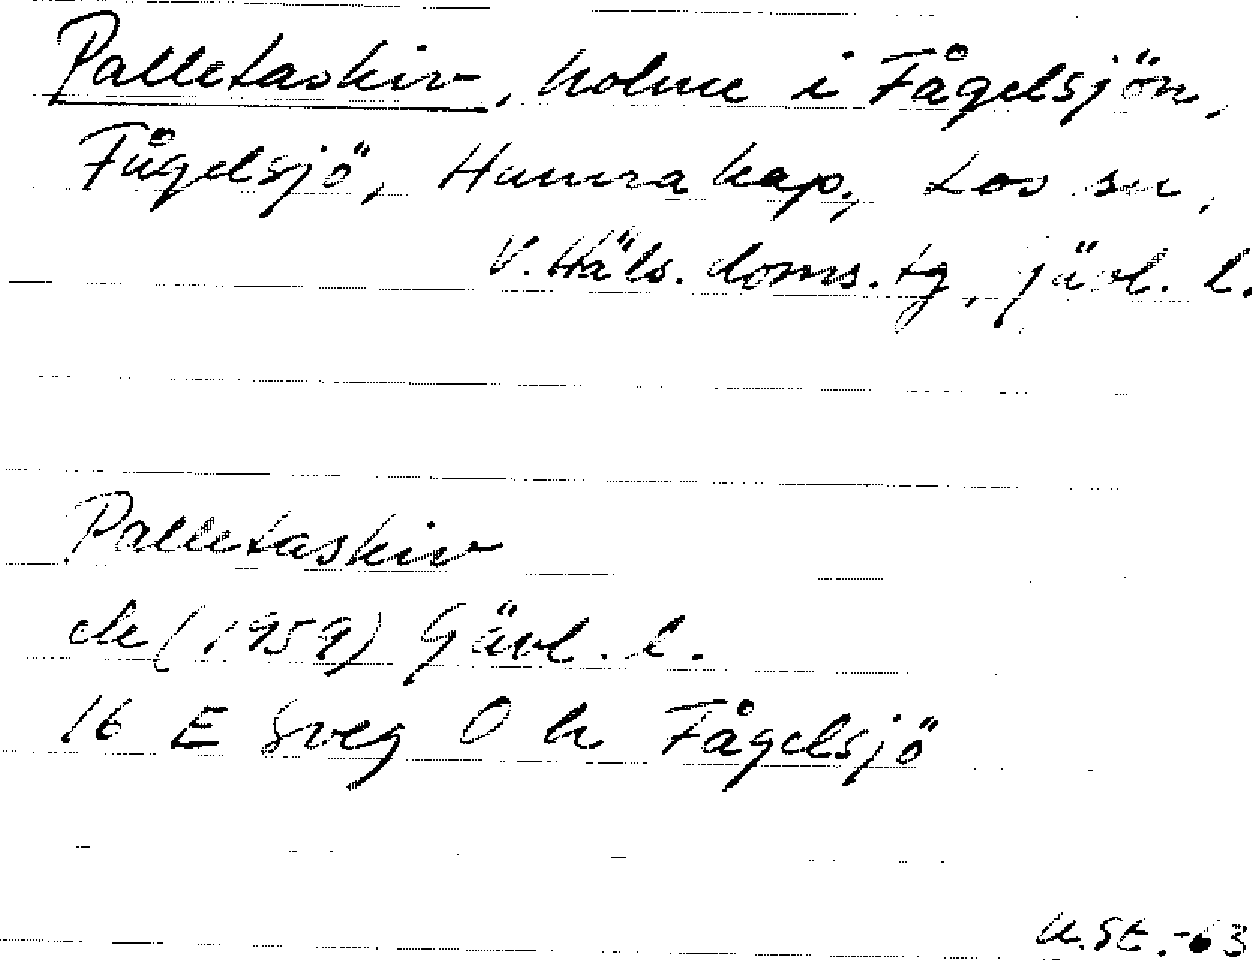 Palletaskiv, holme i Fågelsjön,
Fågelsjö, Hamra kap., Los sn,
V. Häls. doms. tg, Gävl. l.
Palletaskiv
ek (1959) Gävl. l.
16 E Sveg O h Fågelsjö
U.St.-63